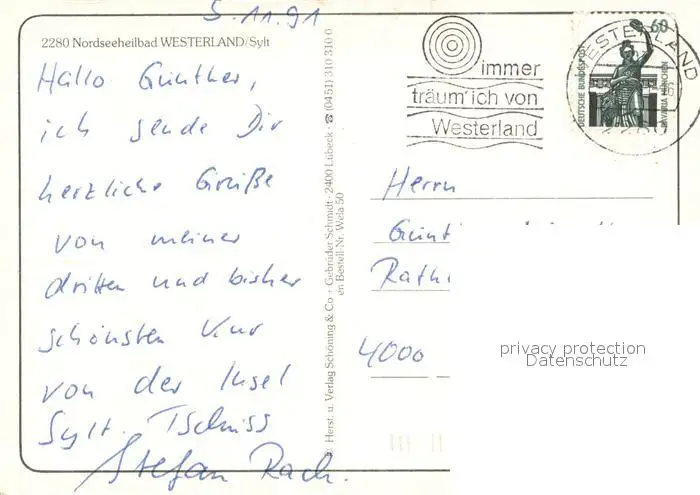 5.11.91
2280 Nordseeheilbad WESTERLAND/Sylt
Hallo Günther,
ich sende Dir
herzliche Grüße
von meiner
dritten und bisher
schönsten Kur
von der Insel
Sylt. Tschüss
Stefan Rach.
Herst. u. Verlag Schöning & Co + Gebrüder Schmidt · 2400 Lübeck · ☎ (0451) 310 310 0
en Bestell-Nr. Wela 50
immer
träum' ich von
Westerland
WESTERLAND
60
DEUTSCHE BUNDESPOST
BAVARIA MÜNCHEN
Herrn
Günt
Rath
4000
privacy protection
Datenschutz